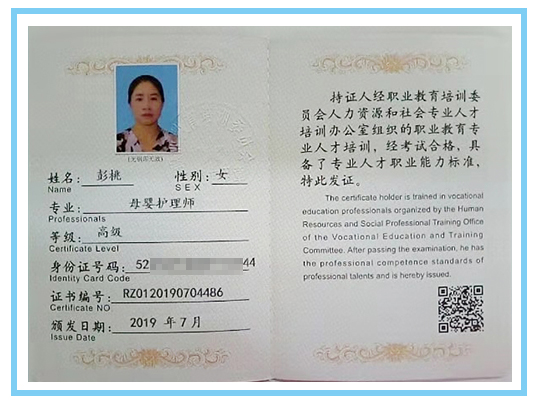 (无钢印无效)
姓名: 彭桃 性别: 女
Name SEX
专业: 母婴护理师
Professionals
等级: 高级
Certificate Level
身份证号码: 52 44
Identity Card Code
证书编号: RZ0120190704486
Certificate NO
颁发日期: 2019 年 7 月
Issue Date
持证人经职业教育培训委
员会人力资源和社会专业人才
培训办公室组织的职业教育专
业人才培训, 经考试合格, 具
备了专业人才职业能力标准,
特此发证。
The certificate holder is trained in vocational
education professionals organized by the Human
Resources and Social Professional Training Office
of the Vocational Education and Training
Committee. After passing the examination, he has
the professional competence standards of
professional talents and is hereby issued.